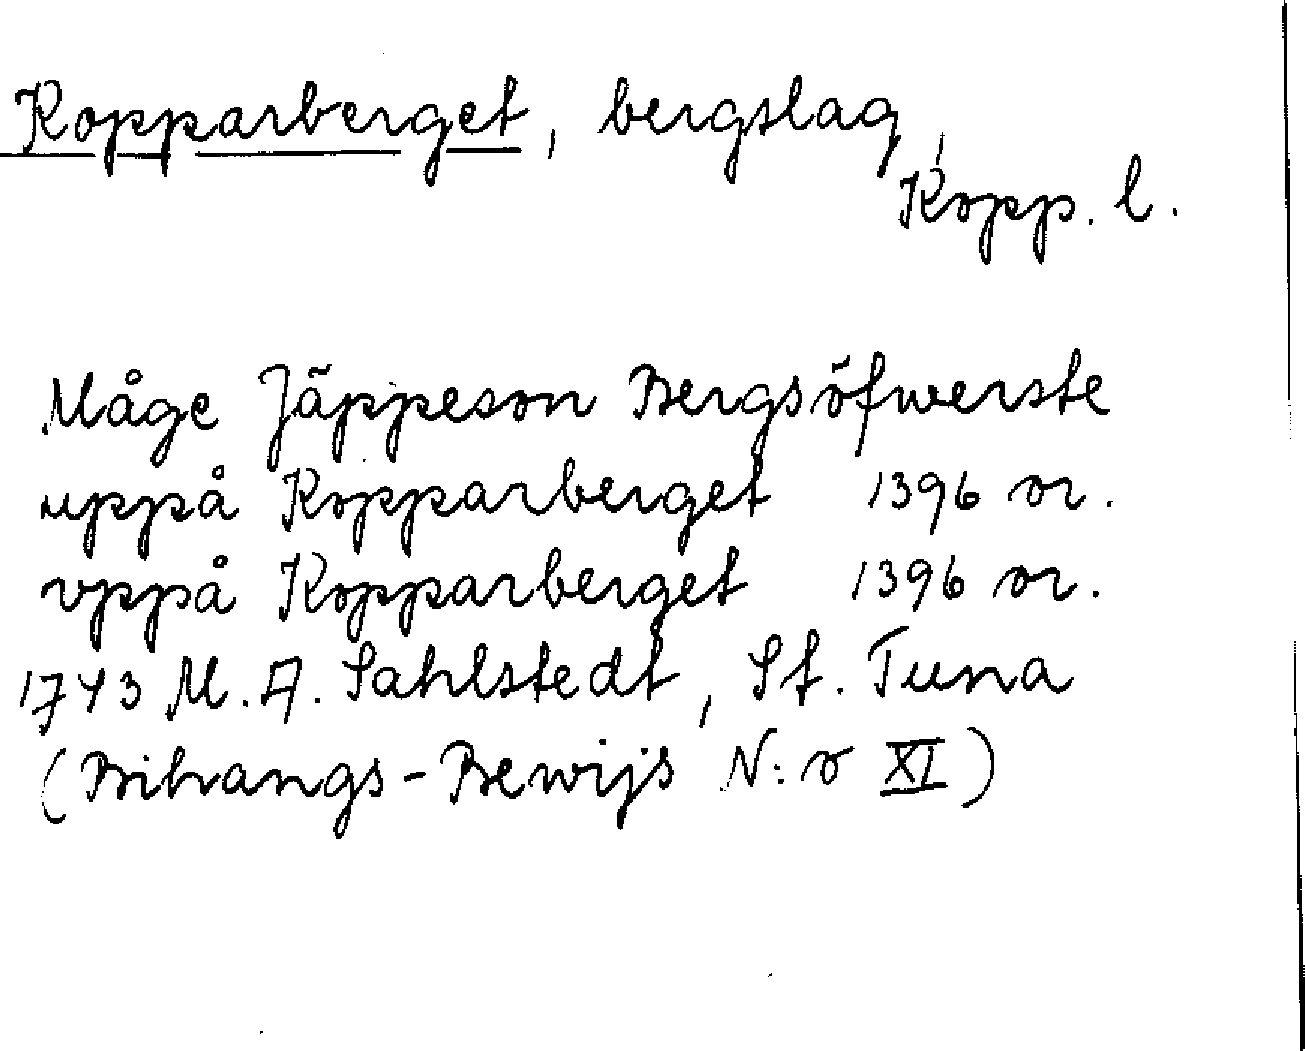 Kopparberget, bergslag,
Kopp. l.
Måge Jäppeson Bergsöfwerste
uppå Kopparberget 1396 or.
vppå Kopparberget 1396 or.
1743 M. A. Sahlstedt, St. Tuna
(Bihangs-Bewijs N:o XI)